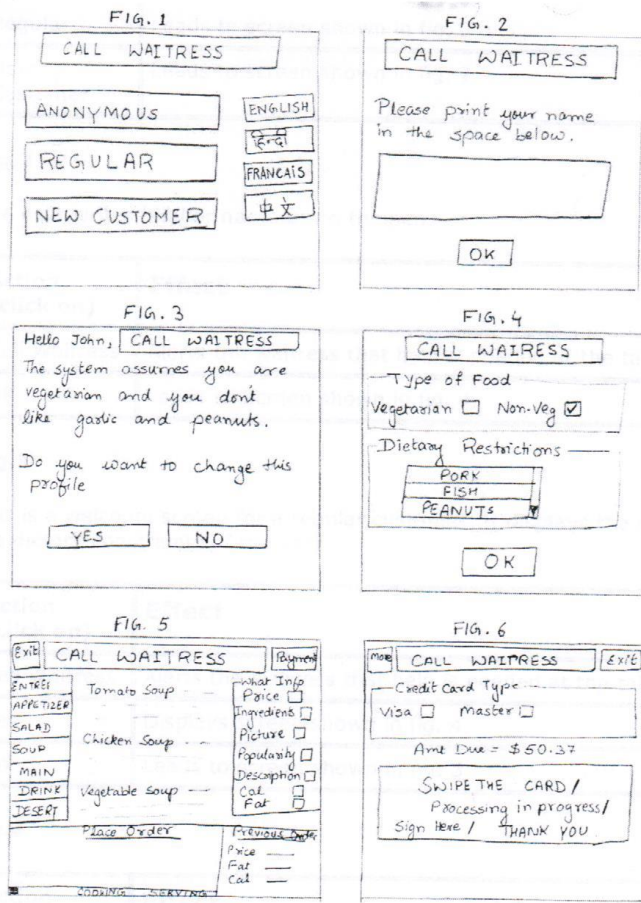 FIG. 1
CALL WAITRESS
ANONYMOUS
REGULAR
NEW CUSTOMER
ENGLISH
हिन्दी
FRANCAIS
中文
FIG. 2
CALL WAITRESS
Please print your name
in the space below.
OK
FIG. 3
Hello John, CALL WAITRESS
The system assumes you are
vegetarian and you don't
like garlic and peanuts.
Do you want to change this
profile
YES NO
FIG. 4
CALL WAIRESS
Type of Food
Vegetarian Non-Veg
Dietary Restrictions
PORK
FISH
PEANUTS
OK
FIG. 5
Exit CALL WAITRESS Payment
ENTREE
APPETIZER
SALAD
SOUP
MAIN
DRINK
DESERT
Tomato Soup
Chicken Soup
Vegetable Soup
What Info
Price
Ingredients
Picture
Popularity
Description
Cal
Fat
Place Order
Previous Order
Price
Fat
Cal
COOKING SERVING
FIG. 6
More CALL WAITRESS EXIT
Credit Card Type
Visa Master
Amt Due = $50.37
SWIPE THE CARD /
Processing in progress /
Sign Here / THANK YOU